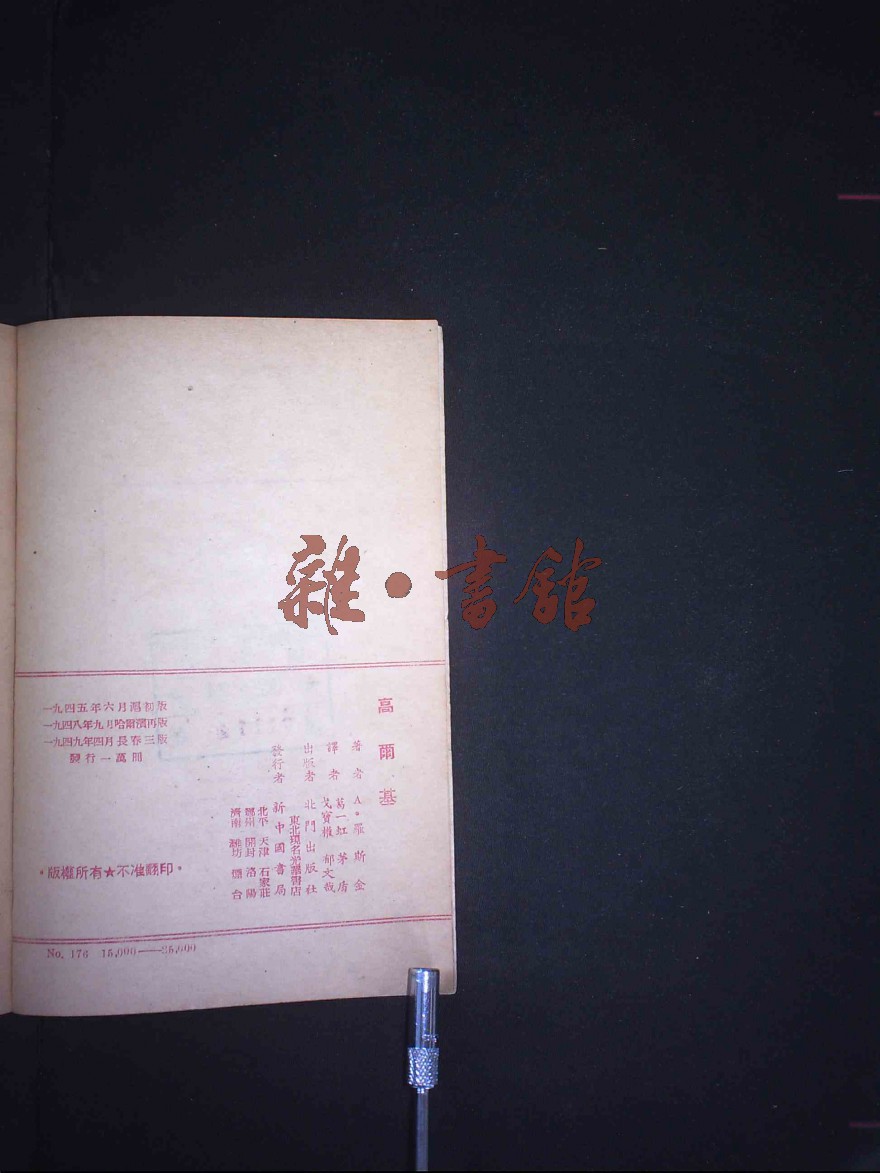 雜·書館
高爾基
著者 A·羅斯金
譯者 葛一虹 茅盾
戈寶權 郁文哉
出版者 北門出版社
東北現名光華書店
發行者 新中國書局
北平 天津 石家莊
鄭州 開封 洛陽
濟南 濰坊 煙台
一九四五年六月滬初版
一九四八年九月哈爾濱再版
一九四九年四月長春三版
發行一萬冊
·版權所有★不准翻印·
No. 176 15,000——25,000